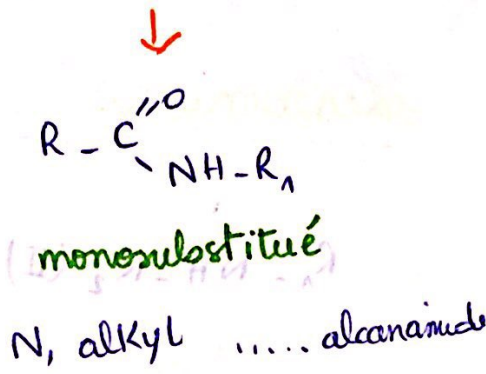 O
R - C
NH-R₁
monosubstitué
N, alkyl ..... alcanamide